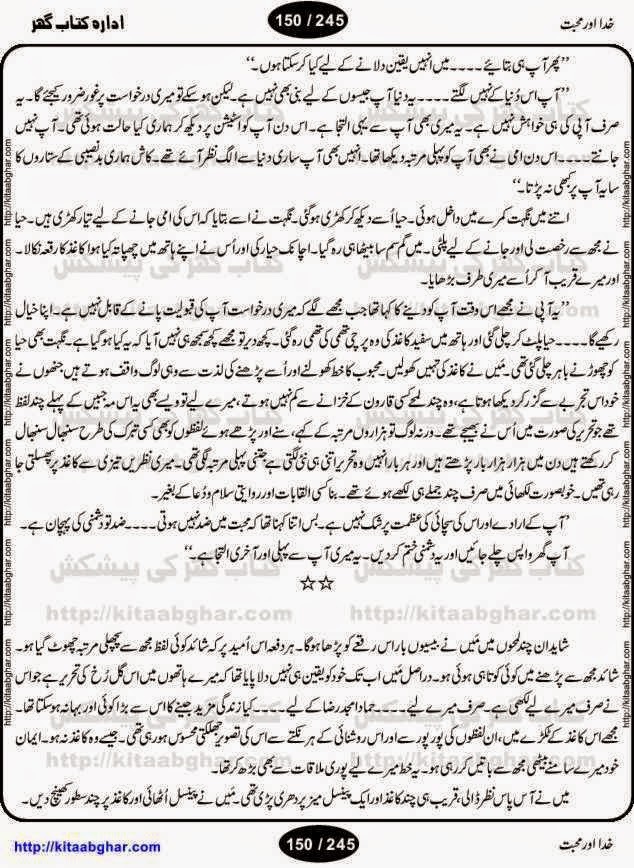 خدا اور محبت
150 / 245
ادارہ کتاب گھر
’’پھر آپ ہی بتائیے۔۔۔۔میں انہیں یقین دلانے کے لیے کیا کر سکتا ہوں۔‘‘
’’آپ اس دُنیا کے نہیں لگتے۔۔۔۔یہ دنیا آپ جیسوں کے لیے بنی بھی نہیں ہے۔ لیکن ہو سکے تو میری درخواست پر غور ضرور کیجئے گا۔ یہ
صرف آپی کی ہی خواہش نہیں ہے۔ یہ میری بھی آپ سے یہی التجا ہے۔ اس دن آپ کو اسٹیشن پر دیکھ کر ہماری کیا حالت ہوئی تھی۔ آپ نہیں
جانتے۔۔۔۔اس دن امی نے بھی آپ کو پہلی مرتبہ دیکھا تھا۔ انہیں بھی آپ ساری دنیا سے الگ نظر آئے تھے۔ کاش ہماری بدنصیبی کے ستاروں کا
سایہ آپ پر کبھی نہ پڑتا۔‘‘
اتنے میں نگہت کمرے میں داخل ہوئی۔ حیا اُسے دیکھ کر کھڑی ہوگئی۔ نگہت نے اسے بتایا کہ اس کی امی جانے کے لیے تیار کھڑی ہیں۔ حیا
نے مجھ سے رخصت لی اور جانے کے لیے پلٹی۔ میں گم سم سا بیٹھا ہی رہ گیا۔ اچانک حیا رکی اور اُس نے اپنے ہاتھ میں چھپا تہ کیا ہوا کاغذ کا رقعہ نکالا۔
اور میرے قریب آ کر اُسے میری طرف بڑھایا۔
’’یہ آپی نے مجھے اس وقت آپ کو دینے کا کہا تھا جب مجھے لگے کہ میری درخواست آپ کی قبولیت پانے کے قابل نہیں ہے۔ اپنا خیال
رکھیے گا۔۔۔۔حیا پلٹ کر چلی گئی اور ہاتھ میں سفید کاغذ کی وہ پرچی تھمی کی تھمی رہ گئی۔ کچھ دیر تو مجھے کچھ سمجھ ہی نہیں آیا کہ یہ کیا ہو گیا ہے۔ نگہت بھی حیا
کو چھوڑنے باہر چلی گئی تھی۔ میں نے کاغذ کی تہیں کھولیں۔ محبوب کا خط کھولنے اور اُسے پڑھنے کی لذت سے وہی لوگ واقف ہوتے ہیں جنھوں نے
خود اس تجربے سے گزر کر دیکھا ہوتا ہے، وہ چند لمحے کسی قارون کے خزانے سے کم نہیں ہوتے، میرے لیے تو ویسے بھی یہ اس مہ جبیں کے پہلے چند لفظ
تھے جو تحریر کی صورت میں اُس نے بھیجے تھے۔ ورنہ لوگ تو ہزاروں مرتبہ کے کہے، سنے اور پڑھے ہوئے لفظوں کو بھی کسی تبرک کی طرح سنبھال سنبھال
کر رکھتے ہیں دن میں ہزار ہزار بار پڑھتے ہیں اور ہر بار انہیں وہ تحریر اتنی ہی نئی لگتی ہے جتنی پہلی مرتبہ لگی تھی۔ میری نظریں تیزی سے کاغذ پر پھسلتی جا
رہی تھیں۔ خوبصورت لکھائی میں صرف چند جملے ہی لکھے ہوئے تھے۔ بنا کسی القابات اور روایتی سلام و دُعا کے بغیر۔
’آپ کے ارادے اور اس کی سچائی کی عظمت پر شک نہیں ہے۔ بس اتنا کہنا تھا کہ محبت میں ضد نہیں ہوتی۔۔۔۔ضد تو دشمنی کی پہچان ہے۔
آپ گھر واپس چلے جائیں اور یہ دشمنی ختم کر دیں۔ یہ میری آپ سے پہلی اور آخری التجا ہے۔‘‘
☆☆
شاید ان چند لمحوں میں مَیں نے بیسیوں بار اس رقعے کو پڑھا ہوگا۔ ہر دفعہ اس اُمید پر کہ شائد کوئی لفظ مجھ سے پچھلی مرتبہ چھوٹ گیا ہو۔
شائد مجھ سے پڑھنے میں کوئی کوتاہی ہوئی ہو۔ دراصل مَیں اب تک خود کو یقین ہی نہیں دلا پایا تھا کہ میرے ہاتھوں میں اس گل رُخ کی تحریر ہے جو اس
نے صرف میرے لیے لکھی ہے۔ صرف میرے لیے۔۔۔۔حماد امجد رضا کے لیے۔۔۔۔کیا زندگی مزید جینے کا اس سے بڑا کوئی اور بہانہ ہو سکتا تھا۔
مجھے اس کاغذ کے ٹکڑے میں، ان لفظوں کی پور پور سے اور اس روشنائی کے ہر نکتے سے اس کی تصویر جھلکتی محسوس ہو رہی تھی۔ جیسے وہ کاغذ نہ ہو۔ ایمان
خود میرے سامنے بیٹھی مجھ سے باتیں کر رہی ہو۔ یہ خط میرے لیے پوری ملاقات سے بھی بڑھ کر تھا۔
میں نے آس پاس نظر ڈالی، قریب ہی چند کاغذ اور ایک پینسل میز پر دھری پڑی تھی۔ مَیں نے پینسل اُٹھائی اور کاغذ پر چند سطور کھینچ دیں۔
کتاب گھر کی پیشکش
http://kitaabghar.com
http://kitaabghar.com
150 / 245
خدا اور محبت